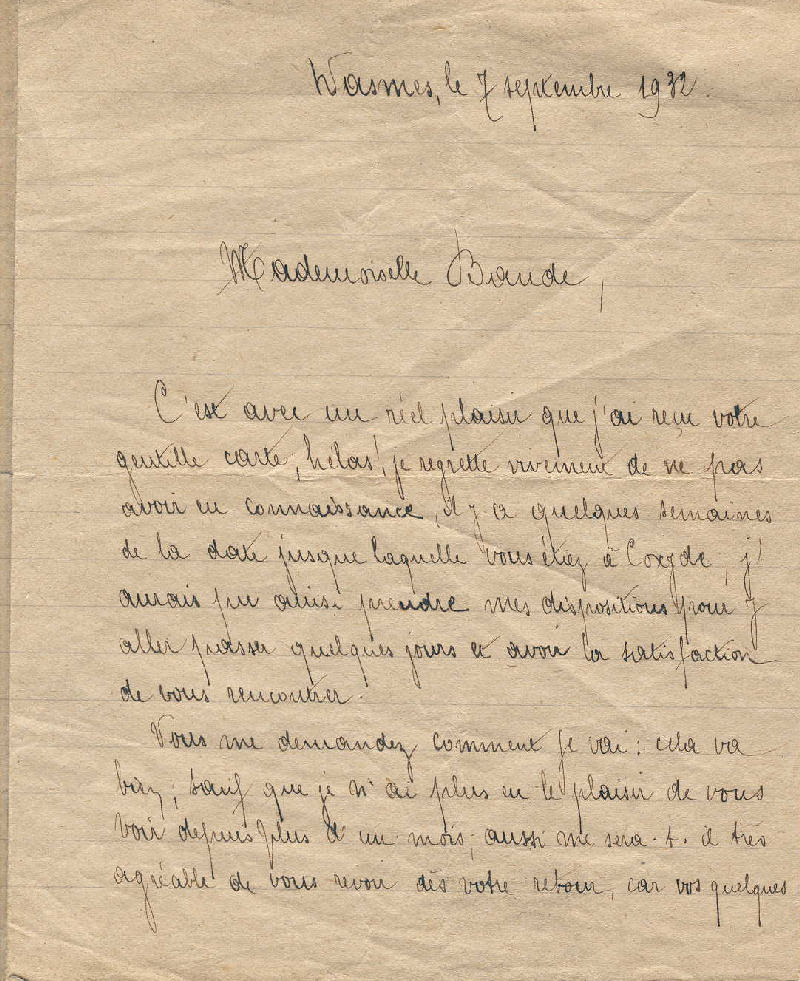 Wasmes, le 7 septembre 1932.
Mademoiselle Baude,
C'est avec un réel plaisir que j'ai reçu votre
gentille carte, hélas!, je regrette vivement de ne pas
avoir eu connaissance, il y a quelques semaines
de la date jusque laquelle vous étiez à Coxyde, j'
aurais pu ainsi prendre mes dispositions pour y
aller passer quelques jours et avoir la satisfaction
de vous rencontrer.
Vous me demandez comment je vai : cela va
bien; sauf que je n'ai plus eu le plaisir de vous
voir depuis plus d'un mois; aussi me sera-t-il très
agréable de vous revoir dès votre retour, car vos quelques